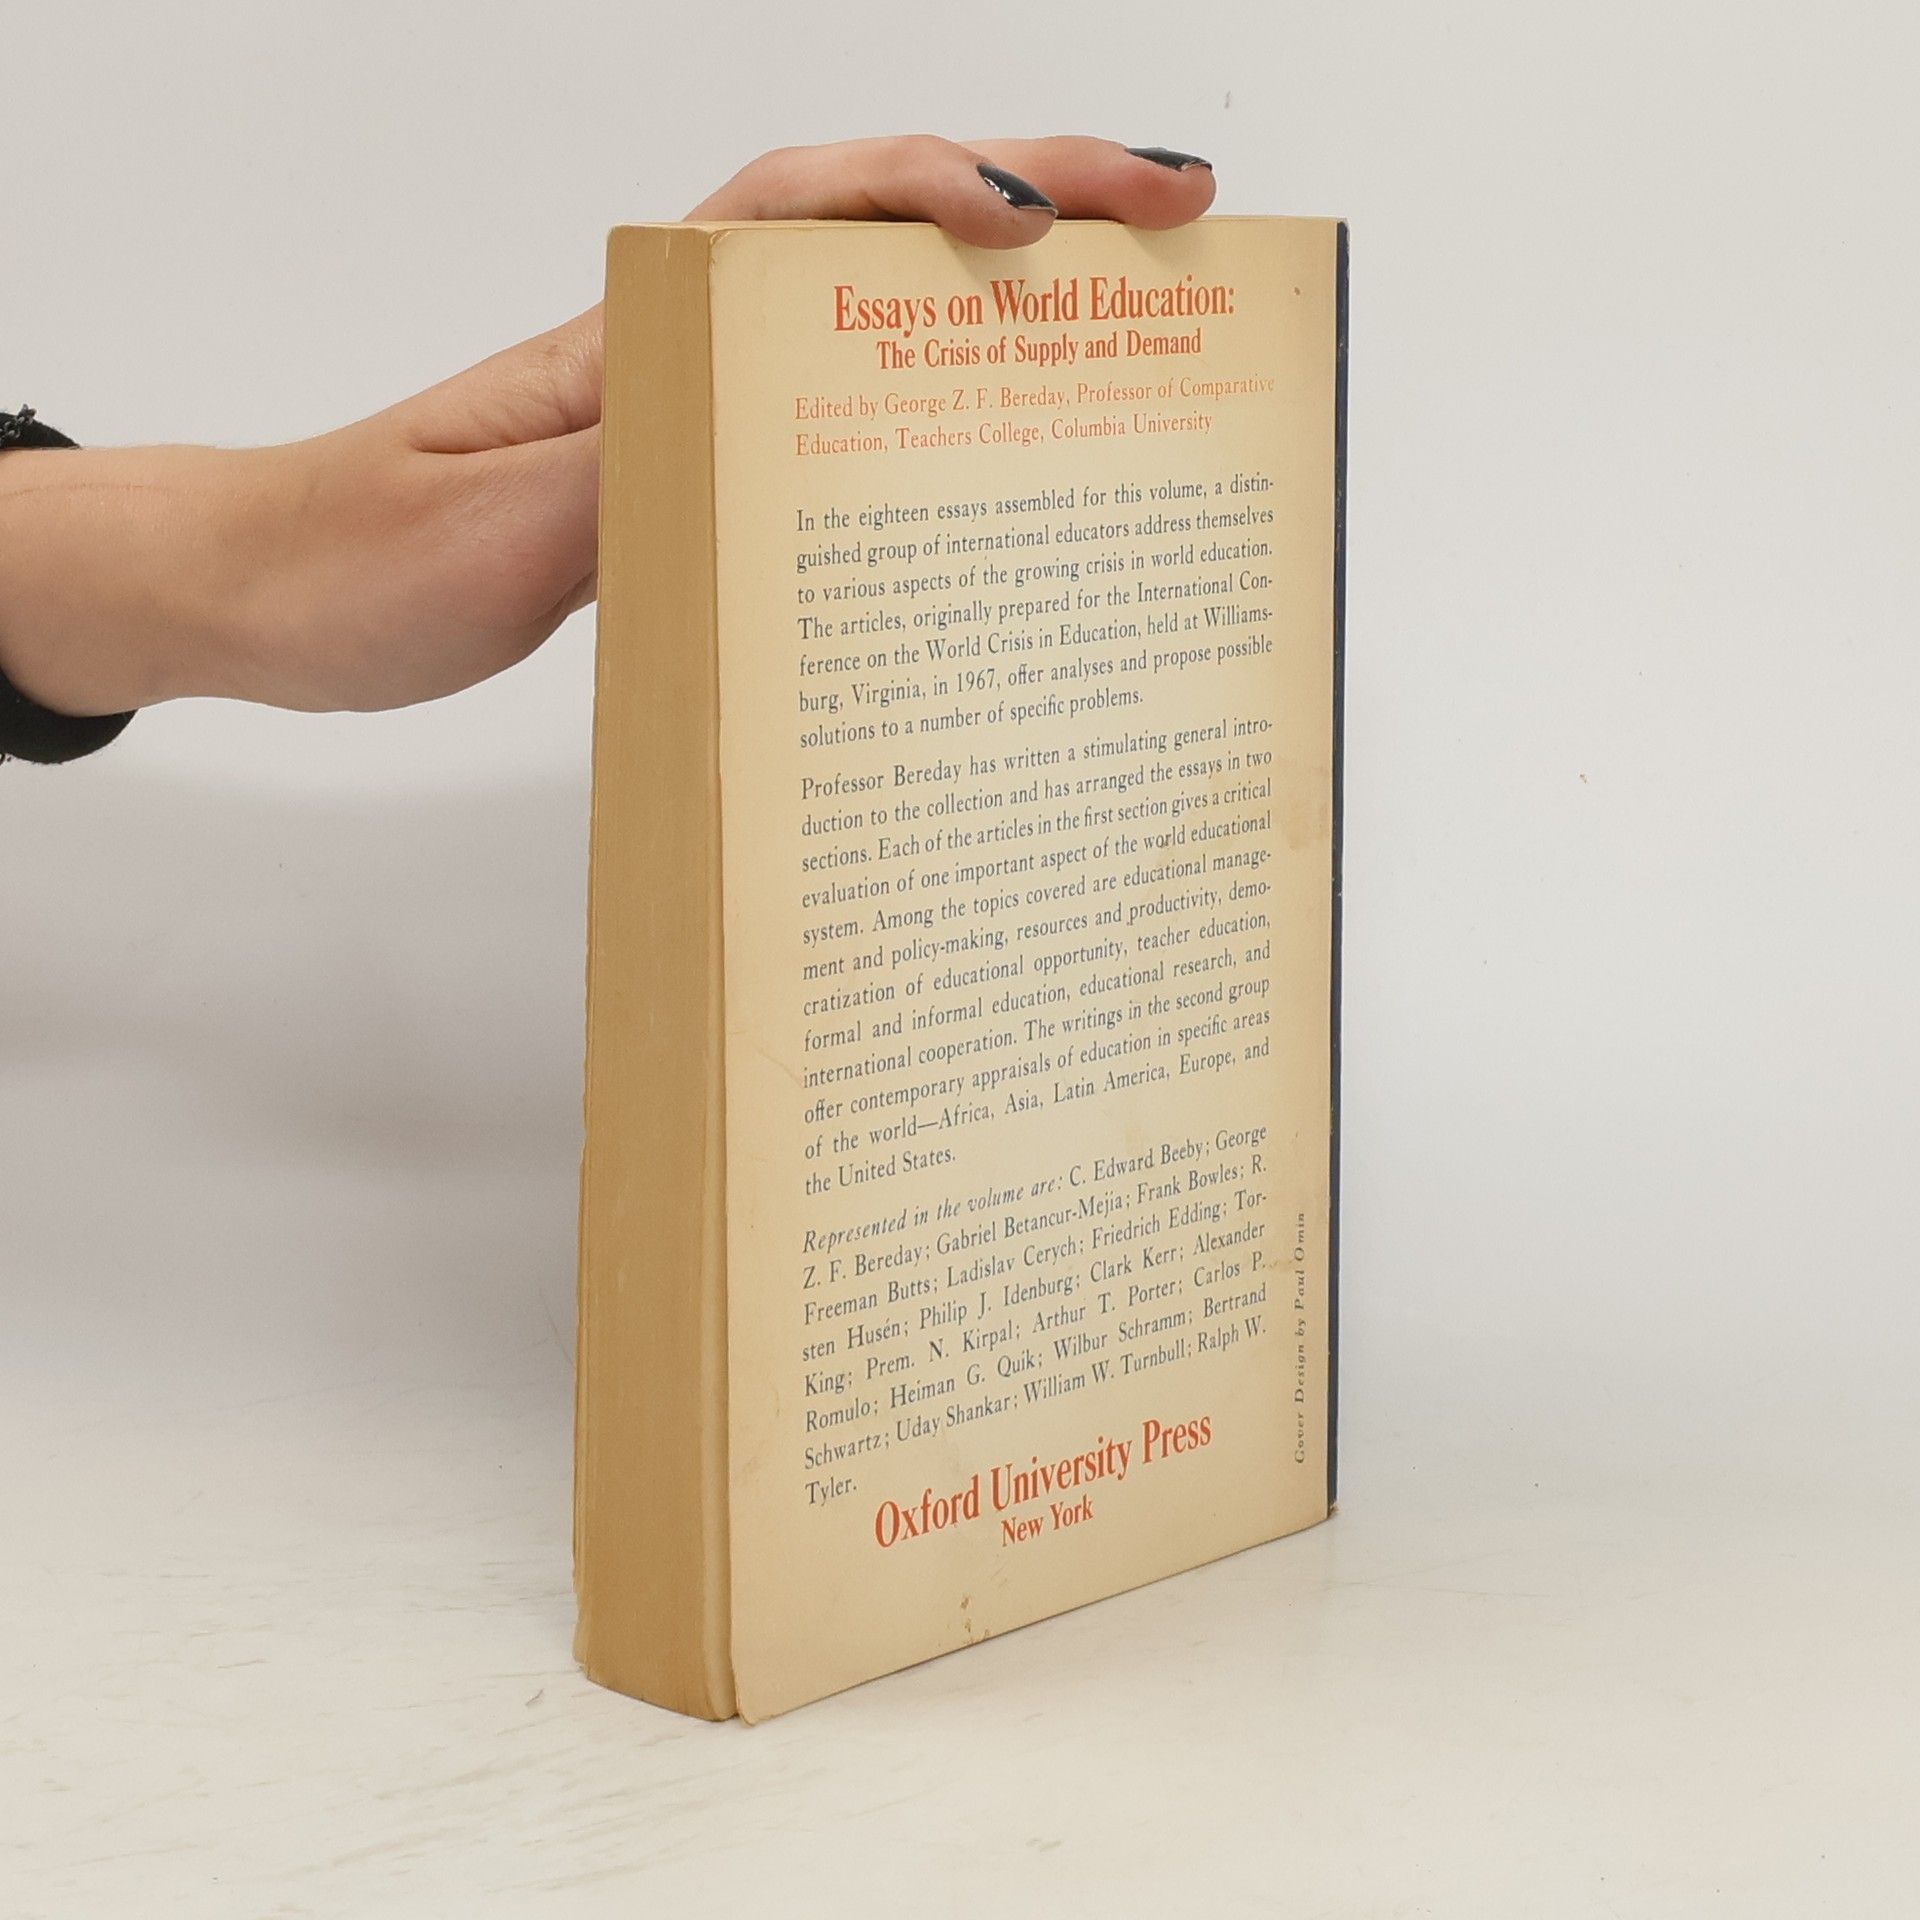 Essays on World Education:
The Crisis of Supply and Demand
Edited by George Z. F. Bereday, Professor of Comparative
Education, Teachers College, Columbia University
In the eighteen essays assembled for this volume, a distin-
guished group of international educators address themselves
to various aspects of the growing crisis in world education.
The articles, originally prepared for the International Con-
ference on the World Crisis in Education, held at Williams-
burg, Virginia, in 1967, offer analyses and propose possible
solutions to a number of specific problems.
Professor Bereday has written a stimulating general intro-
duction to the collection and has arranged the essays in two
sections. Each of the articles in the first section gives a critical
evaluation of one important aspect of the world educational
system. Among the topics covered are educational manage-
ment and policy-making, resources and productivity, demo-
cratization of educational opportunity, teacher education,
formal and informal education, educational research, and
international cooperation. The writings in the second group
offer contemporary appraisals of education in specific areas
of the world—Africa, Asia, Latin America, Europe, and
the United States.
Represented in the volume are: C. Edward Beeby; George
Z. F. Bereday; Gabriel Betancur-Mejía; Frank Bowles; R.
Freeman Butts; Ladislav Cerych; Friedrich Edding; Tor-
sten Husén; Philip J. Idenburg; Clark Kerr; Alexander
King; Prem. N. Kirpal; Arthur T. Porter; Carlos P.
Romulo; Heiman G. Quik; Wilbur Schramm; Bertrand
Schwartz; Uday Shankar; William W. Turnbull; Ralph W.
Tyler.
Oxford University Press
New York
Cover Design by Paul Omin